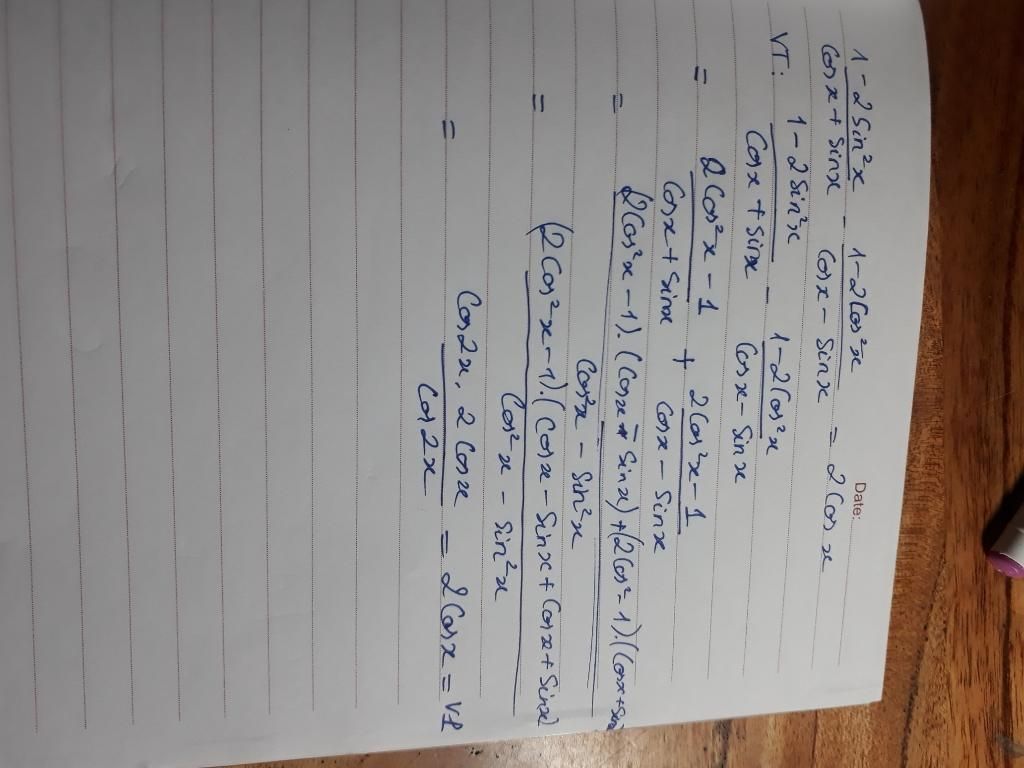 Date:
1 - 2Sin²x / Cosx + Sinx - 1 - 2Cos²x / Cosx - Sinx = 2Cosx
VT: 1 - 2Sin²x / Cosx + Sinx - 1 - 2Cos²x / Cosx - Sinx
= 2Cos²x - 1 / Cosx + Sinx + 2Cos²x - 1 / Cosx - Sinx
= (2Cos²x - 1).(Cosx - Sinx) + (2Cos² - 1).(Cosx + Sinx / Cos²x - Sin²x
= (2Cos²x - 1).(Cosx - Sinx + Cosx + Sinx) / Cos²x - Sin²x
= Cos2x. 2Cosx / Cos2x = 2Cosx = VP